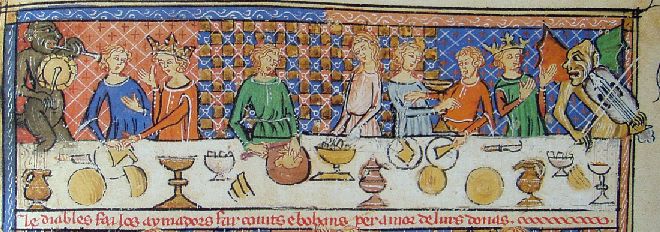 Le diables fai los aymadors far couits e bobans per amor de lurs donas.